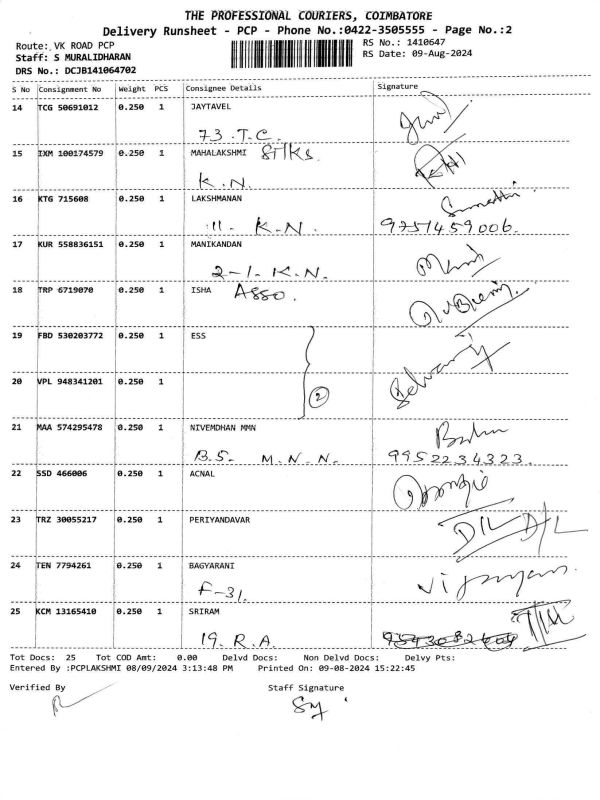 THE PROFESSIONAL COURIERS, COIMBATORE
Delivery Runsheet - PCP - Phone No.:0422-3505555 - Page No.:2
Route: VK ROAD PCP
RS No.: 1410647
Staff: S MURALIDHARAN
RS Date: 09-Aug-2024
DRS No.: DCJB141064702
S No Consignment No Weight PCS Consignee Details Signature
14 TCG 50691012 0.250 1 JAYTAVEL
73 T.C.
15 IXM 100174579 0.250 1 MAHALAKSHMI Silks
K.N.
16 KTG 715608 0.250 1 LAKSHMANAN
11. K.N. 9751459006.
17 KUR 558836151 0.250 1 MANIKANDAN
2-1. K.N.
18 TRP 6719070 0.250 1 ISHA Asso.
19 FBD 530203772 0.250 1 ESS
20 VPL 948341201 0.250 1
2
21 MAA 574295478 0.250 1 NIVEMDHAN MMN
B.S. M.N.N. 9952234323.
22 SSD 466006 0.250 1 ACNAL
23 TRZ 30055217 0.250 1 PERIYANDAVAR
D/L D/L
24 TEN 7794261 0.250 1 BAGYARANI
F-31.
25 KCM 13165410 0.250 1 SRIRAM
19. R.A.
Tot Docs: 25 Tot COD Amt: 0.00 Delvd Docs: Non Delvd Docs: Delvy Pts:
Entered By :PCPLAKSHMI 08/09/2024 3:13:48 PM Printed On: 09-08-2024 15:22:45
Verified By Staff Signature